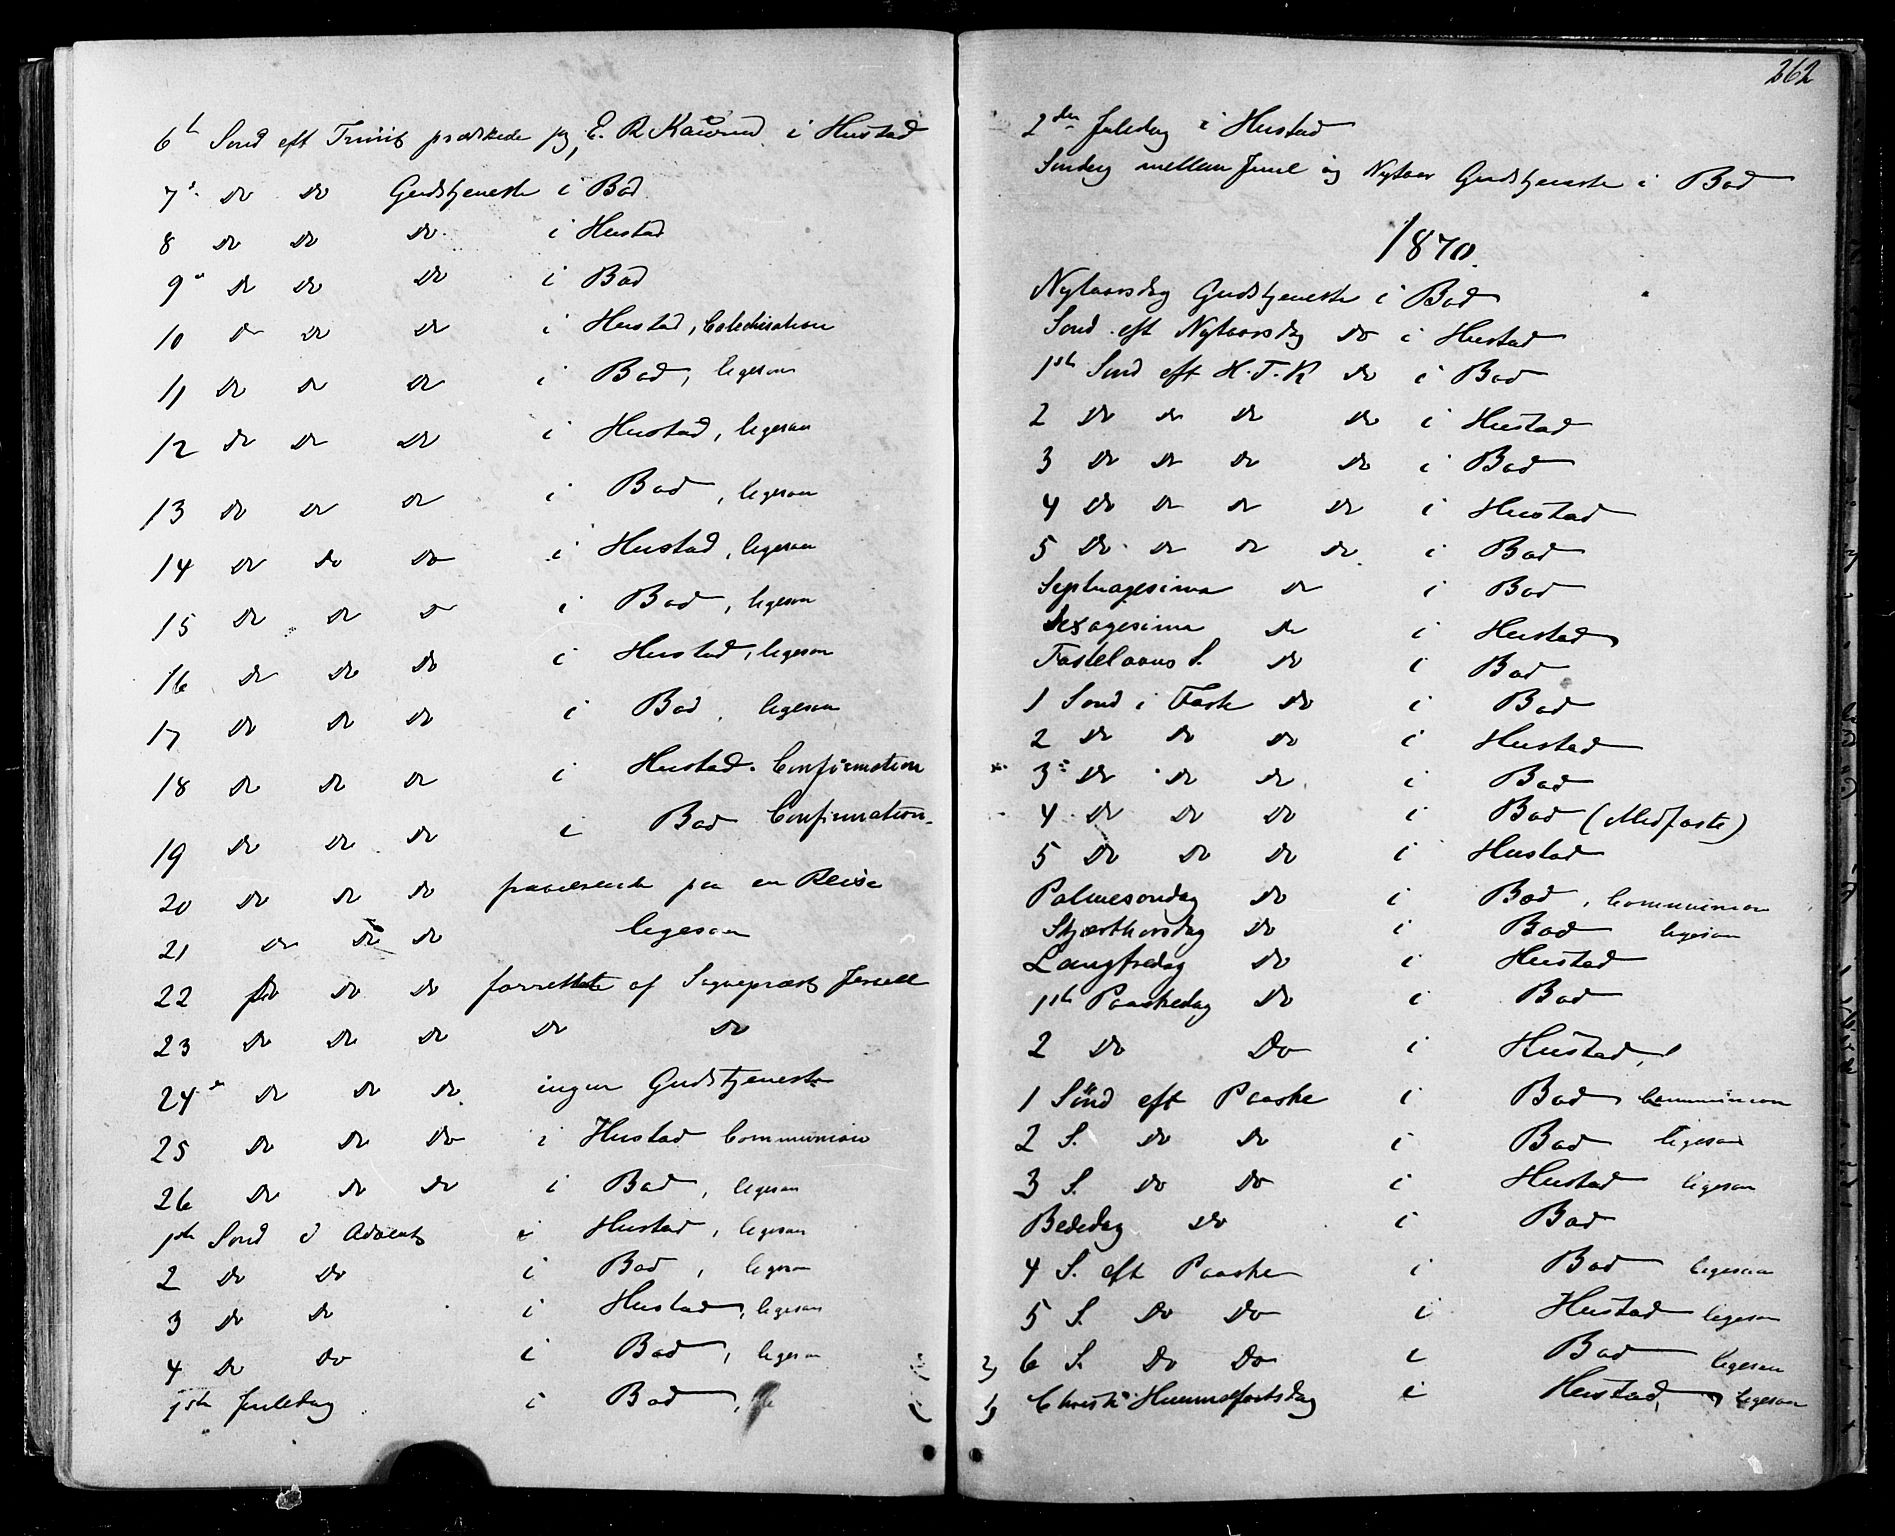 6te Sønd eft Trinit prædikede jeg, E. R. Kaurin i Hustad
7de Do Do Gudstjeneste i Bod
8 Do Do Do i Hustad
9de Do Do Do i Bod
10 Do Do Do i Hustad, Catechisation
11 Do Do Do i Bod, ligesaa
12 Do Do Do i Hustad, ligesaa
13 Do Do Do i Bod, ligesaa
14 Do Do Do i Hustad, ligesaa
15 Do Do Do i Bod, ligesaa
16 Do Do Do i Hustad, ligesaa
17 Do Do Do i Bod, ligesaa
18 Do Do Do i Hustad. Confirmation
19 Do Do Do i Bod Confirmation.
20 Do Do Do fraværende paa en Reise
21 Do Do Do ligesaa
22 Do Do Do forrettet af Sognepræst
23 Do Do Do Do Do
24de Do Do Do ingen Gudstjeneste
25 Do Do Do i Hustad Communion
26 Do Do Do i Bod, ligesaa
1ste Sønd i Advent i Hustad, ligesaa
2 Do Do i Bod, ligesaa
3 Do Do i Hustad, ligesaa
4 Do Do i Bod, ligesaa
1ste Juledag i Bod,
262
2den Juledag i Hustad
Søndag mellem Juul og Nytaar Gudstjeneste i Bod
1870.
Nytaarsdag Gudstjeneste i Bod
Sønd. eft Nytaarsdag Do i Hustad
1ste Sønd eft H.T.K Do i Bod
2 Do Do Do Do i Hustad
3 Do Do Do Do i Bod
4 Do Do Do Do i Hustad
5 Do Do Do Do i Bod
Septuagesima Do i Bod
Sexagesima Do i Hustad
Fastelavns S. Do i Bod
1 Sønd i Faste Do i Bod
2 Do Do Do i Hustad
3 Do Do Do i Bod
4 Do Do Do i Bod (Midfaste)
5 Do Do Do i Hustad
Palmesøndag Do i Bod, Communion
Skjærthorsdag Do i Bod ligesaa
Langfredag Do i Hustad
1ste Paaskedag Do i Bod
2 Do Do i Hustad,
1 Sønd eft Paaske i Bod Communion
2 S. Do Do i Bod ligesaa
3 S. Do Do i Hustad ligesaa
Bededag Do i Bod
4 S. eft Paaske i Bod ligesaa
5 S. Do Do i Hustad ligesaa
6 S. Do Do i Bod ligesaa
Christi Himmelfartsdag i Hustad, ligesaa